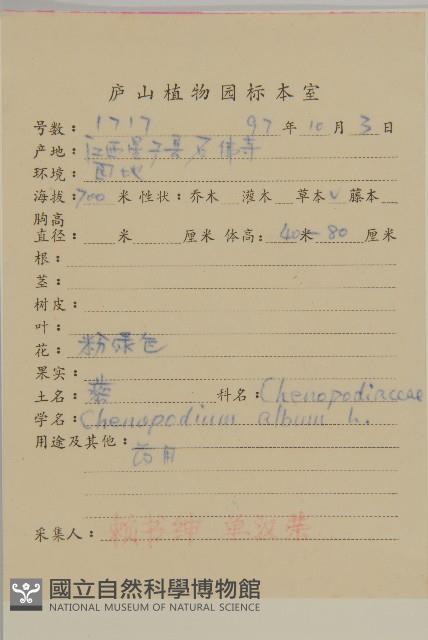 庐山植物园标本室
号数：1717 97年10月3日
产地：江西星子县石佛寺
环境：
海拔：700米 性状：乔木 灌木 草本√ 藤本
胸高
直径： 米 厘米 体高：40米-80厘米
根：
茎：
树皮：
叶：
花：粉绿色
果实：
土名：藜 科名：Chenopodiaceae
学名：Chenopodium album L.
用途及其他：药用
采集人：赖书绅 单汉荣
國立自然科學博物館
NATIONAL MUSEUM OF NATURAL SCIENCE